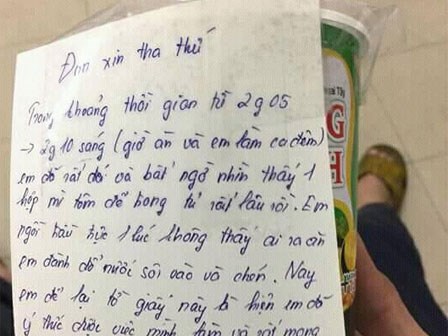 Đơn xin tha thứ
Trong khoảng thời gian từ 2g05
→ 2g10 sáng (giờ ăn và em làm ca đêm)
em đã rất đói và bất ngờ nhìn thấy 1
hộp mì tôm để trong tủ rất lâu rồi. Em
ngồi hầu trực 1 lúc không thấy ai ra ăn
em đành đổ nước sôi vào và chén. Nay
em để lại tờ giấy này là hiện em đã
ý thức được việc mình làm và rất mong